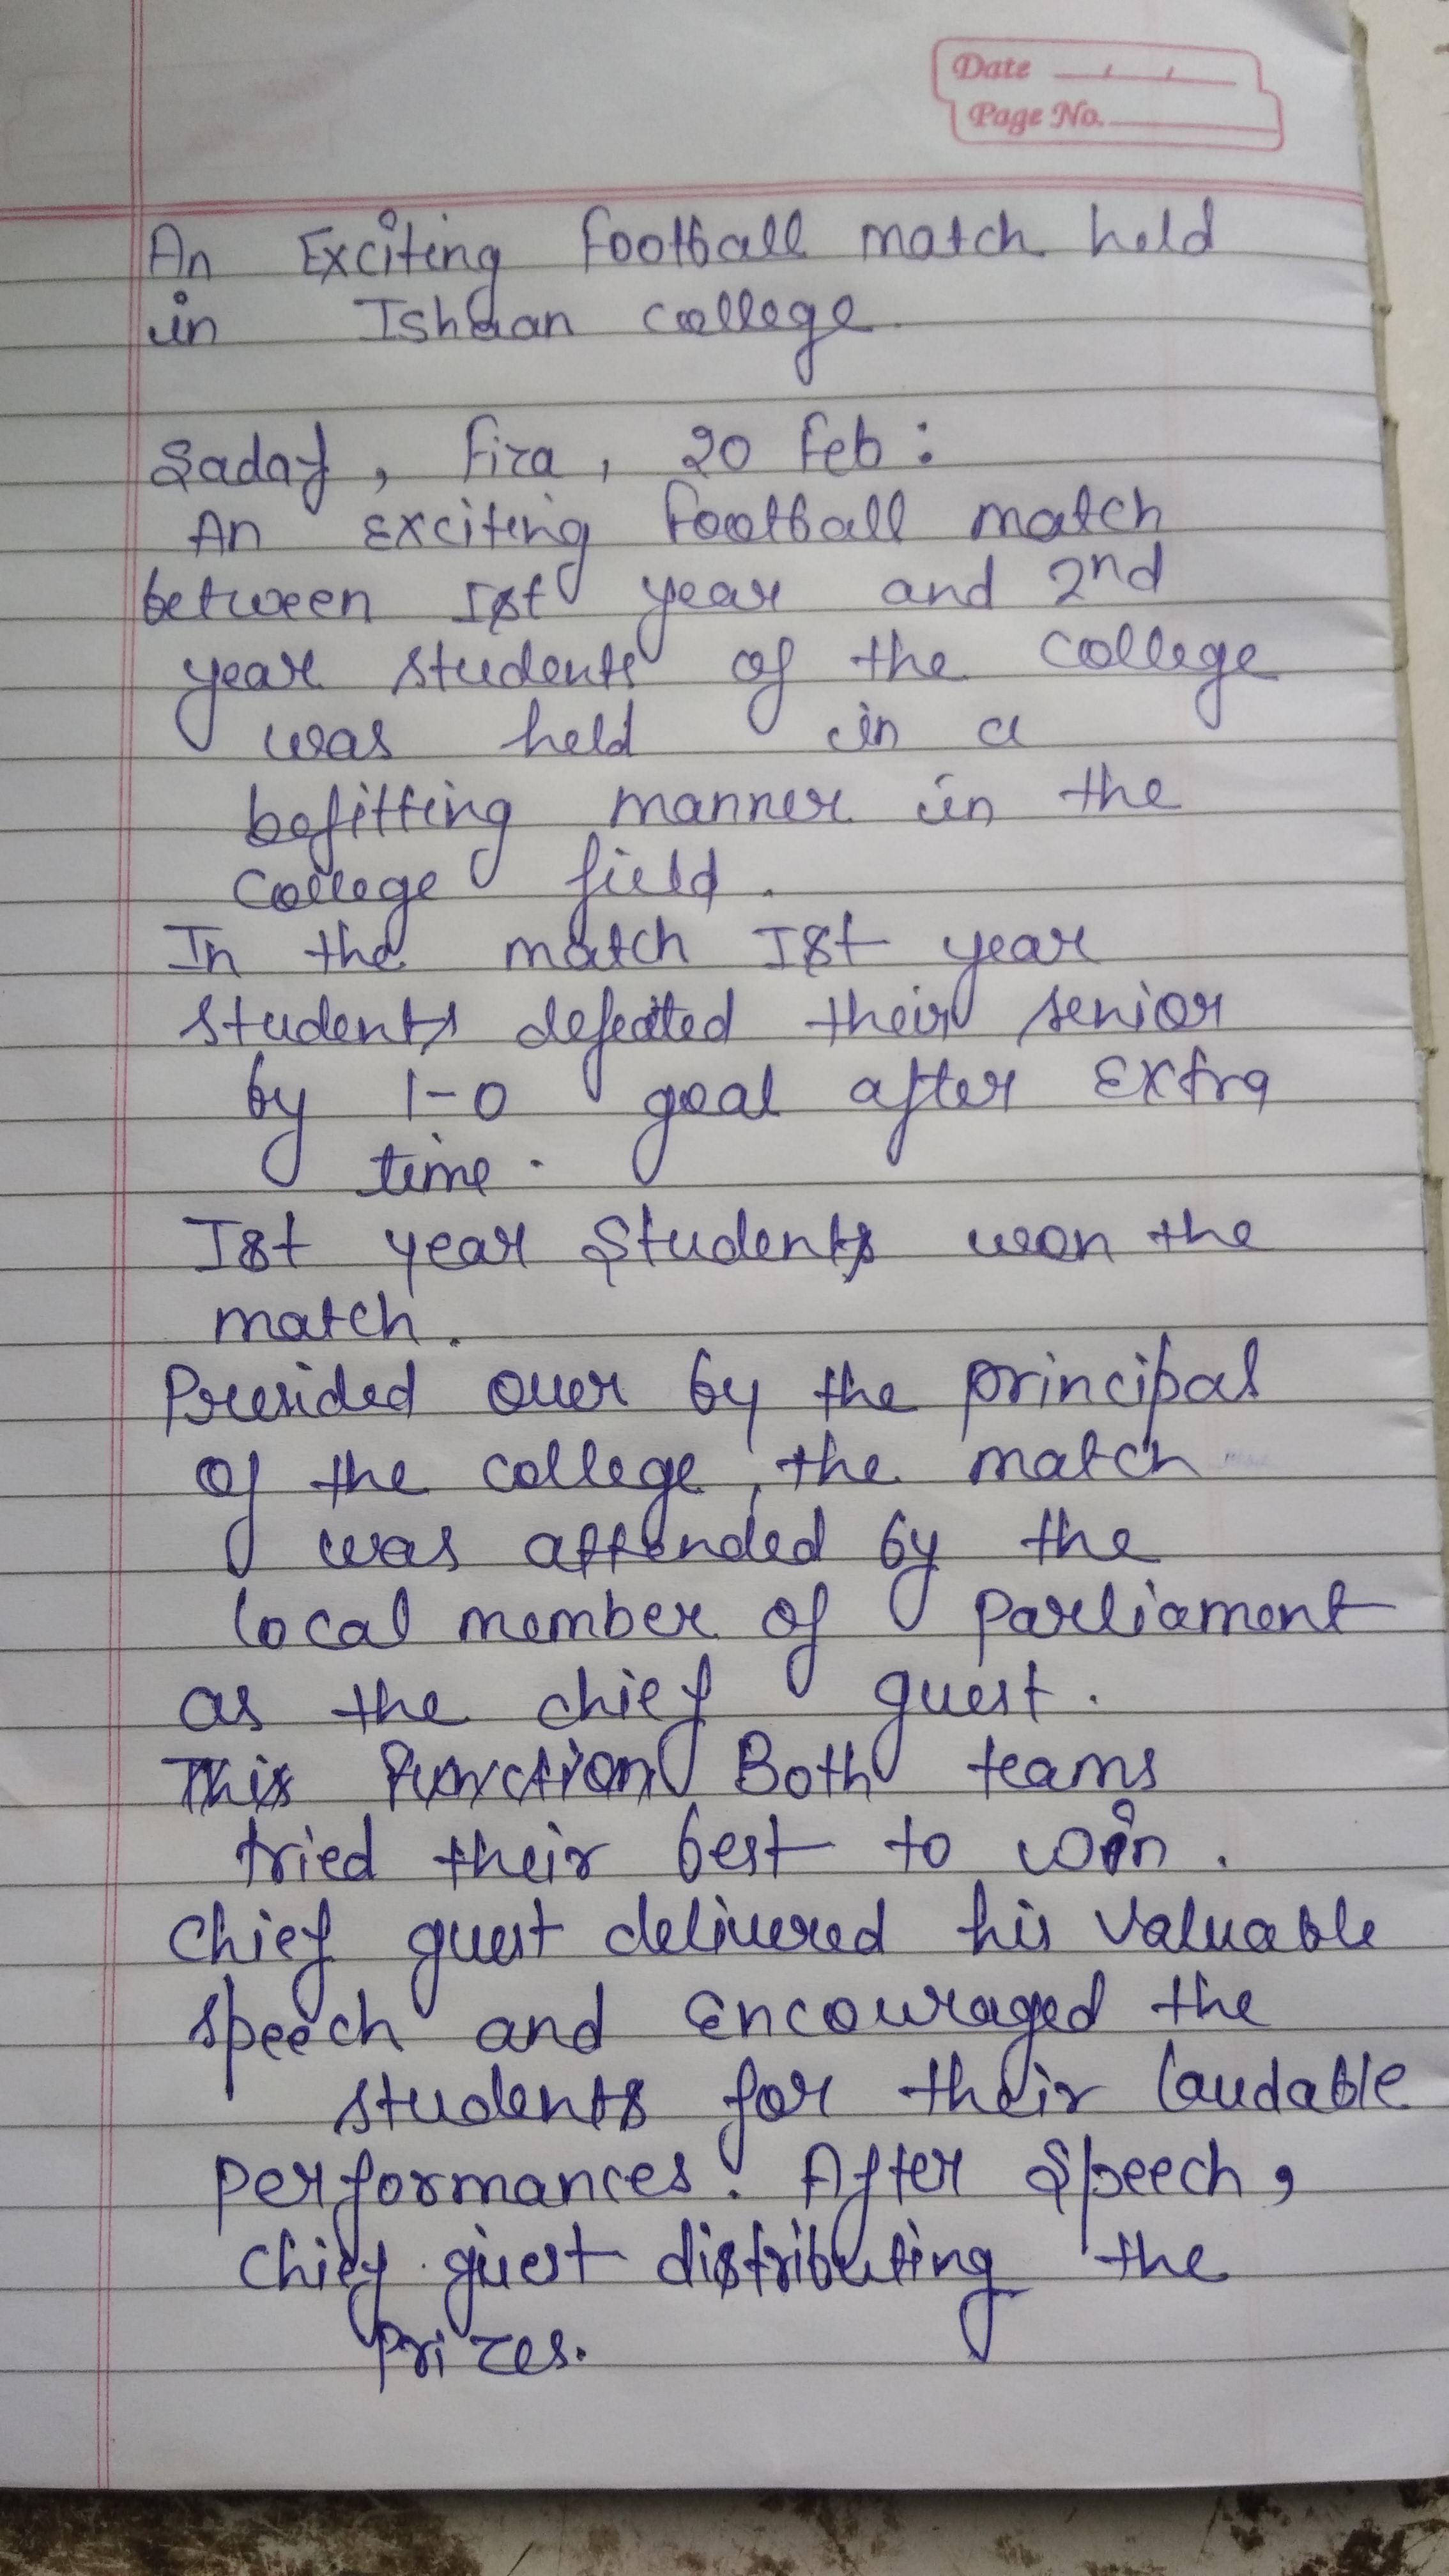 Date
Page No.
An Exciting football match held
in Ishaan college.
Sadaf, Fiza, 20 Feb:
An exciting football match
between Ist year and 2nd
year students of the college
was held in a
befitting manner in the
College field.
In the match Ist year
students defeated their senior
by 1-0 goal after Extra
time.
Ist year Students won the
match.
Presided over by the principal
of the college, the match
was attended by the
local member of parliament
as the chief guest.
Both teams
tried their best to win.
Chief guest delivered his valuable
speech and encouraged the
students for their laudable
performances. After speech,
chief guest distributing the
prizes.